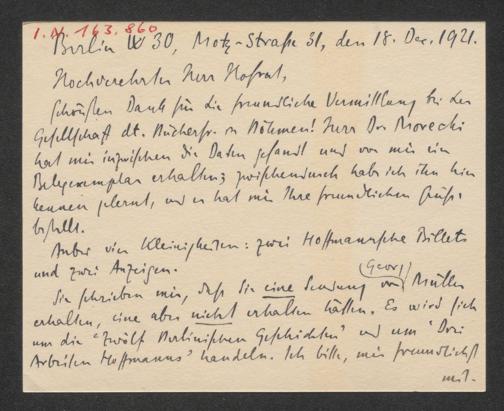 I.N. 163.860
Berlin W 30, Motz-Straße 31, den 18. Dez. 1921.
Hochverehrter Herr Hofrat,
schönsten Dank für die freundliche Vermittlung bei der
Gesellschaft dt. Bücherfr. in Böhmen! Herr Dr. Morecki
hat mir inzwischen die Daten gesandt und von mir ein
Belegexemplar erhalten; zwischendurch habe ich ihn hier
kennen gelernt, und er hat mir Ihre freundlichen Grüße
bestellt.
Anbei vier Kleinigkeiten: zwei Hoffmannsche Billets
und zwei Anzeigen.
Sie schrieben mir, daß Sie eine Sendung von (Georg) Müller
erhalten, eine aber nicht erhalten hätten. Es wird sich
um die "Zwölf Berlinischen Geschichten" und um "Drei
Arbeiten Hoffmanns" handeln. Ich bitte, mir freundlichst
mit-